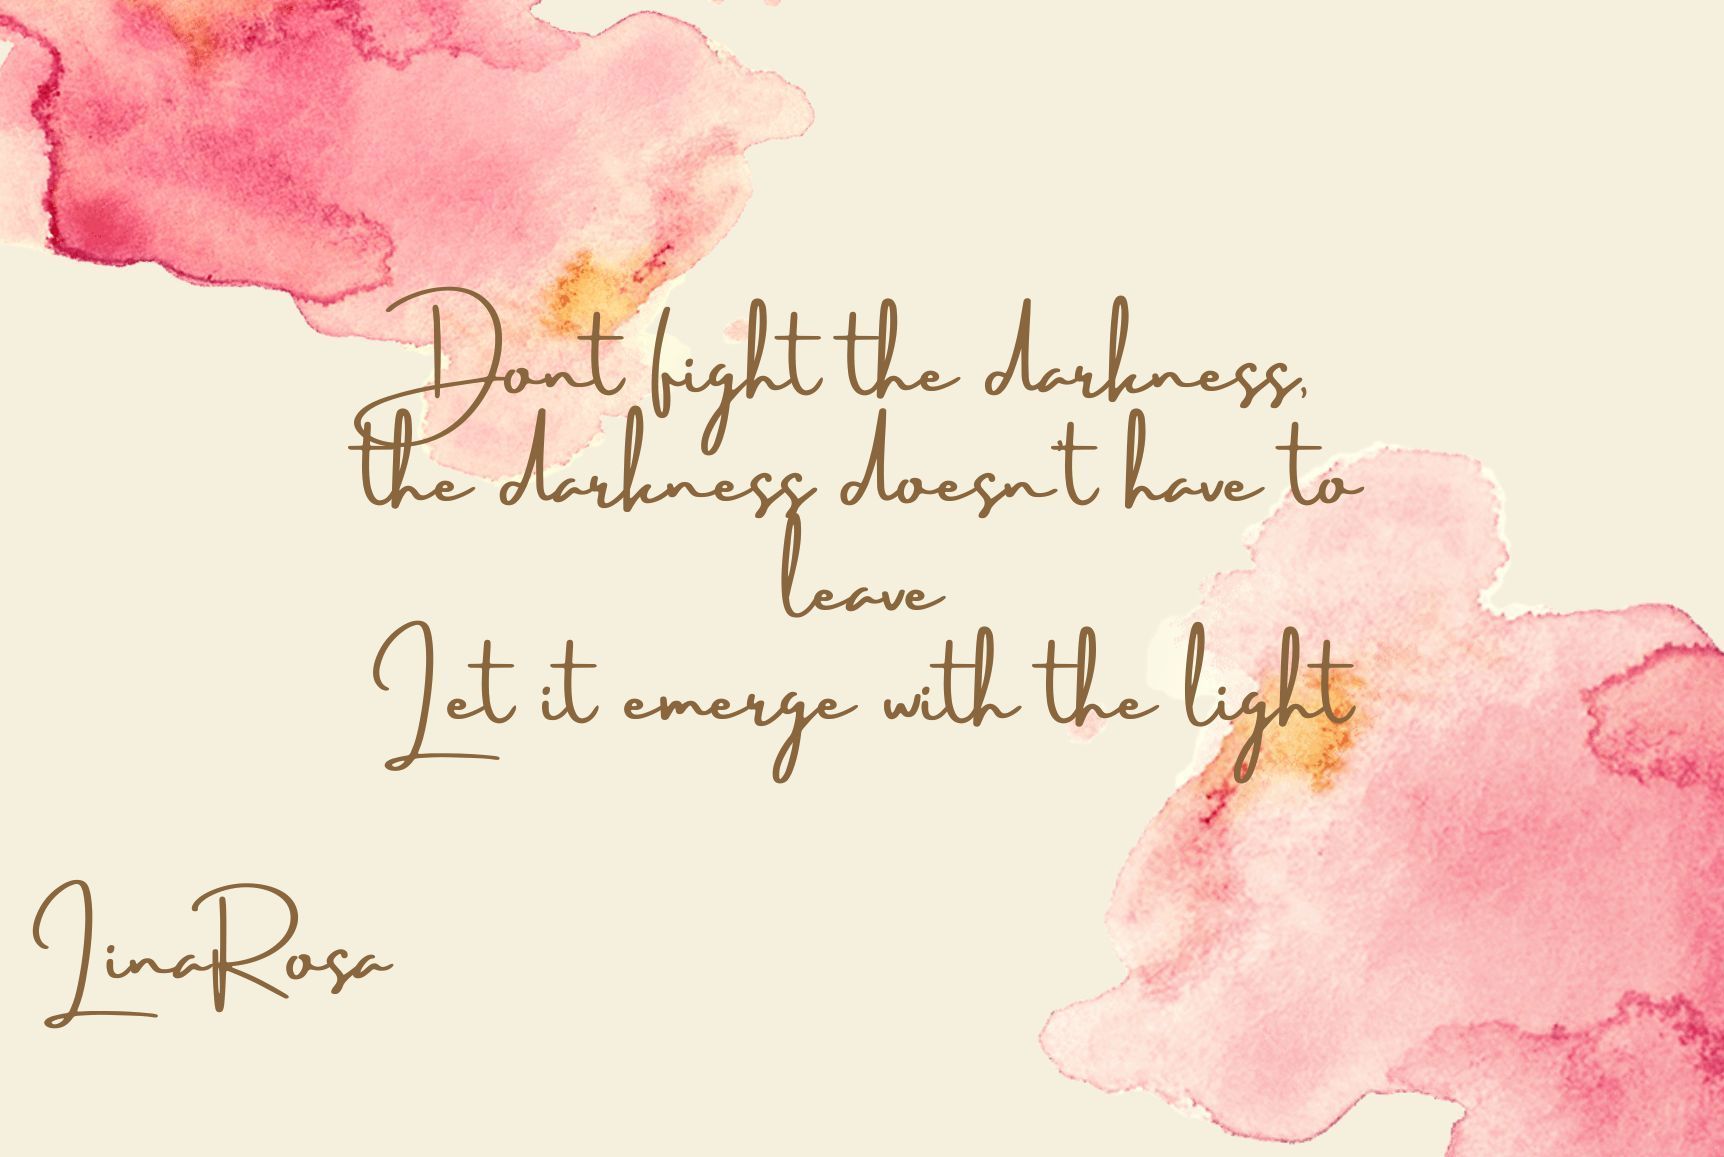 Dont fight the darkness,
the darkness doesn't have to
leave
Let it emerge with the light
LinaRosa